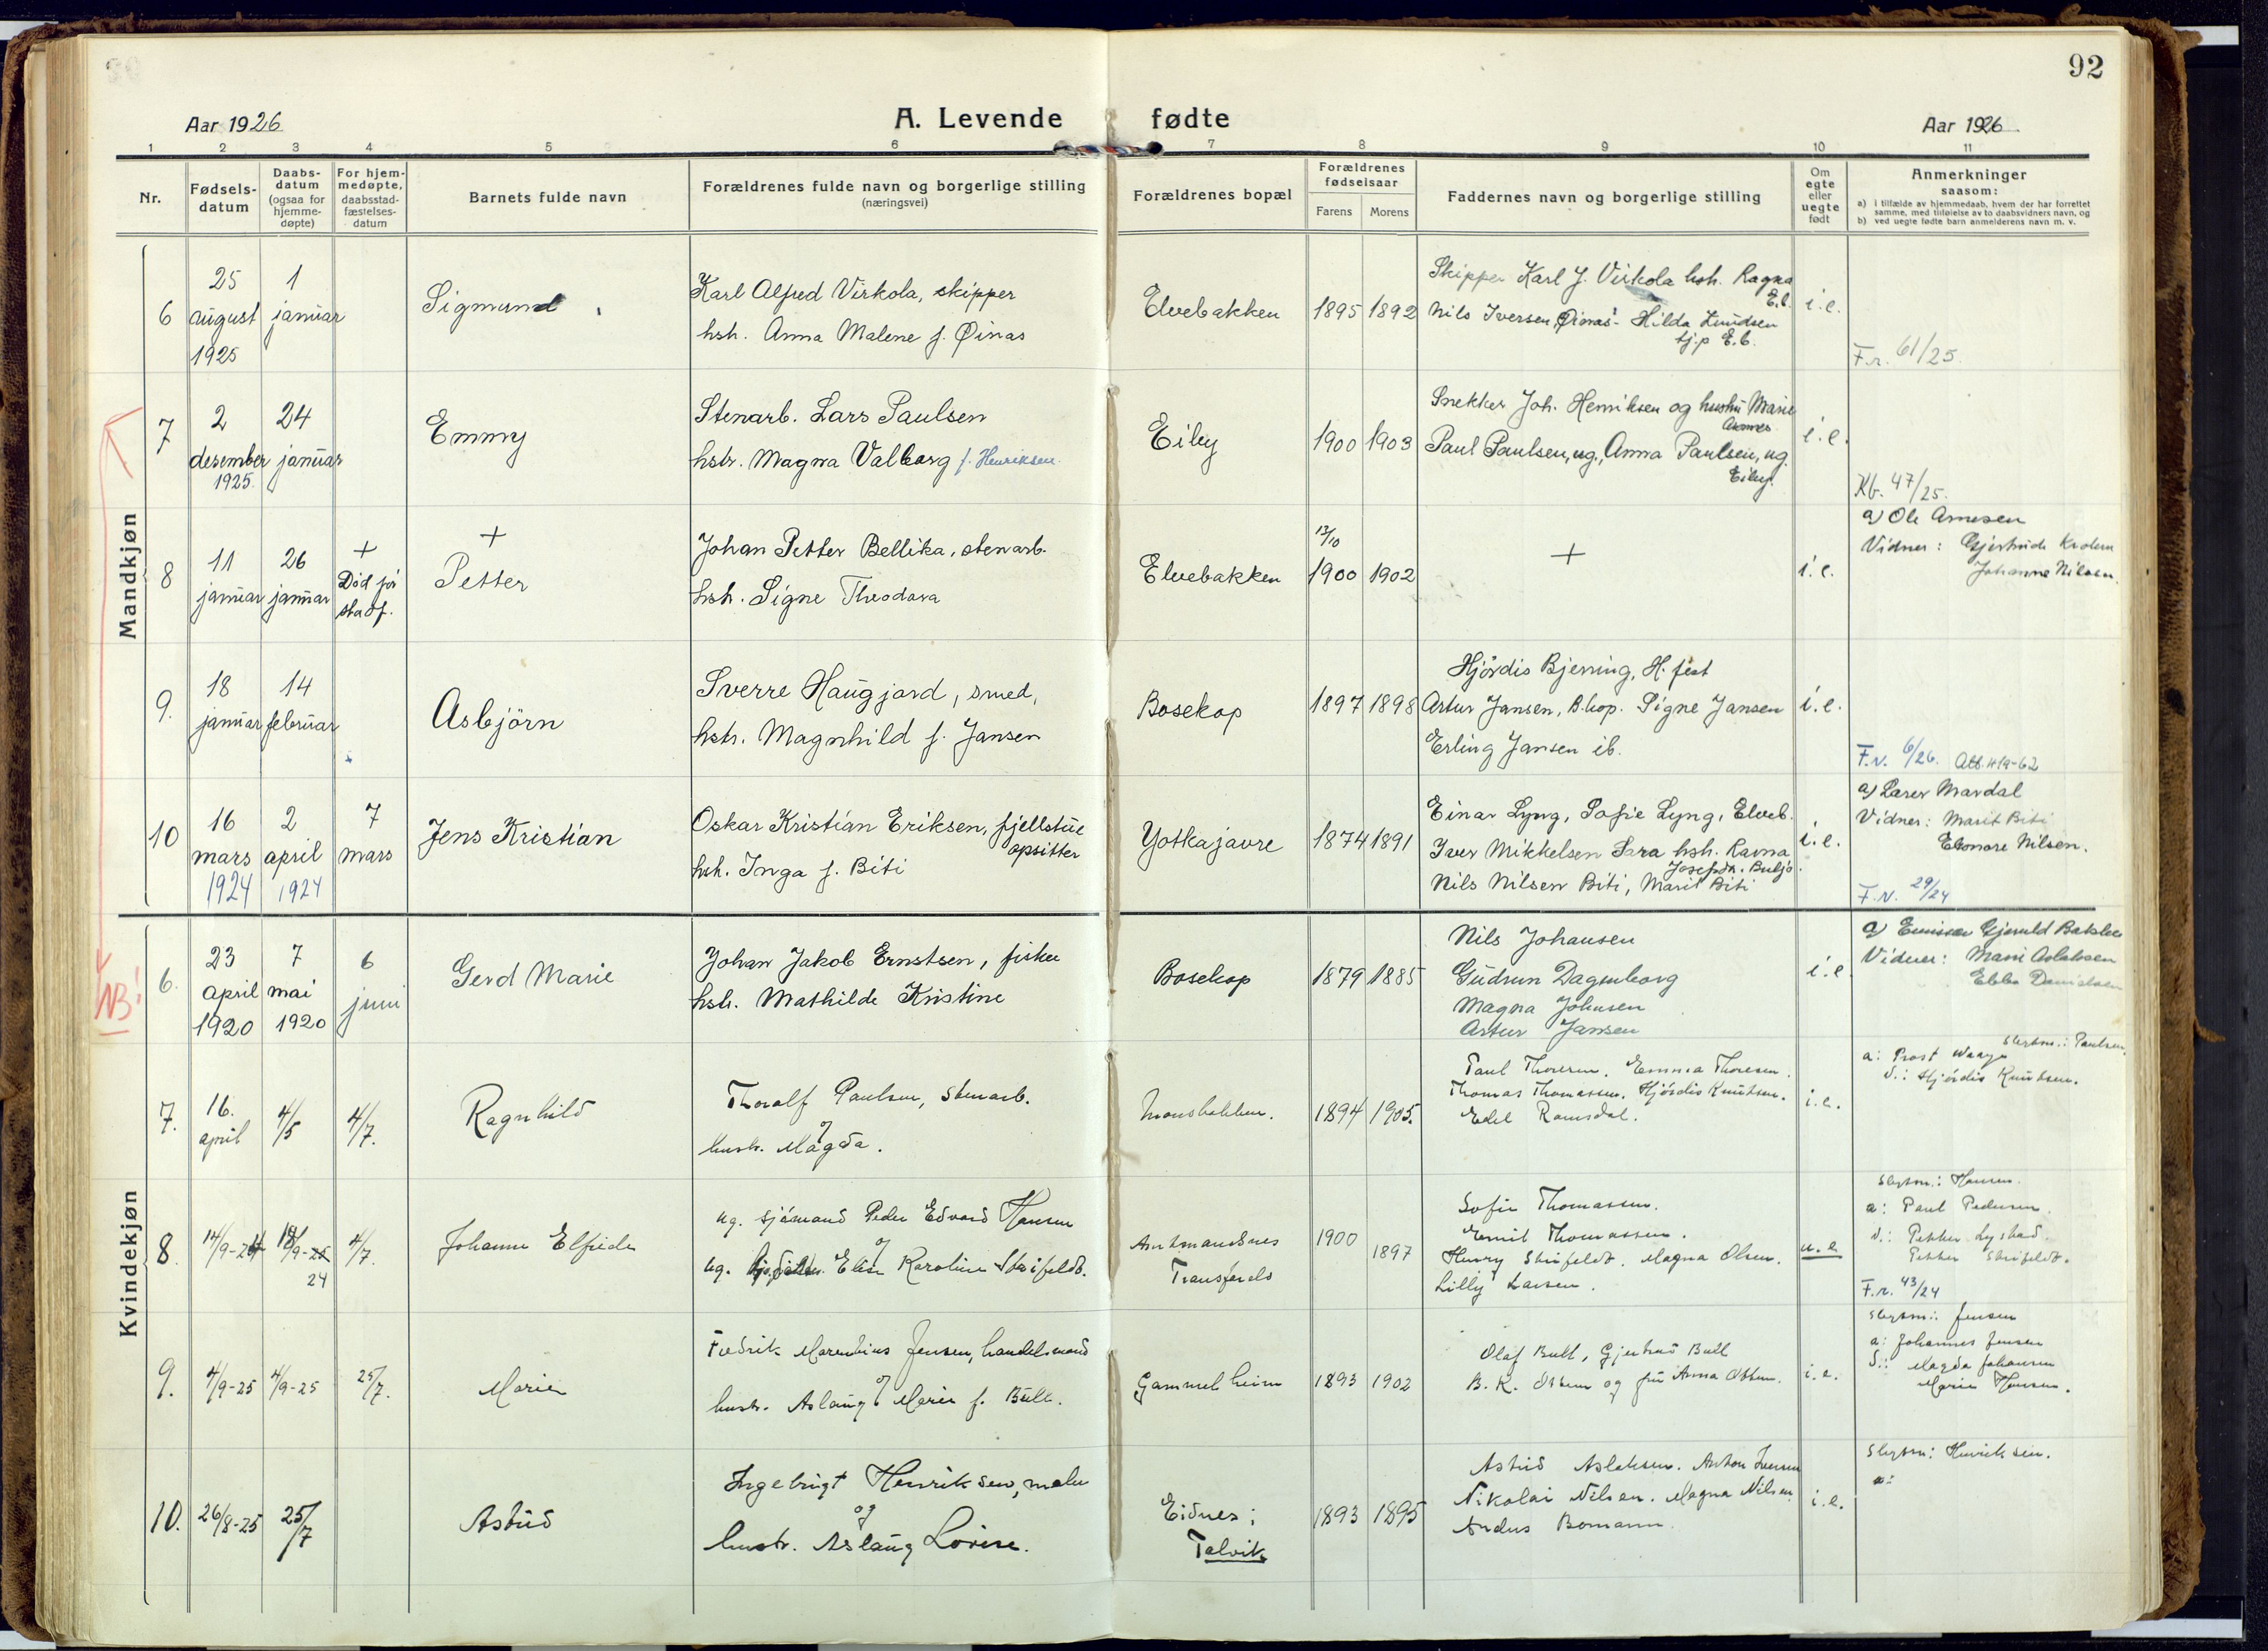 92
Aar 1926
A. Levende fødte
Aar 1926
1 2 3 4 5 6 7 8 9 10 11
Nr.
Fødsels-
datum
Daabs-
datum
(ogsaa for
hjemme-
døpte)
For hjem-
medøpte,
daabsstad-
fæstelses-
datum
Barnets fulde navn
Forældrenes fulde navn og borgerlige stilling
(næringsvei)
Forældrenes bopæl
Forældrenes
fødselsaar
Farens Morens
Faddernes navn og borgerlige stilling
Om
egte
eller
uegte
født
Anmerkninger
saasom:
a) i tilfælde av hjemmedaab, hvem der har forrettet
samme, med tilføielse av to daabsvidners navn, og
b) ved uegte fødte barn anmelderens navn m. v.
Mandkjøn
6
25
august
1925
1
januar
Sigmund
Karl Alfred Virkola, skipper
hsh. Anna Malene f. Øinas
Elvebakken
1895 1892
Skipper Karl J. Virkola hsh. Ragna
E.b.
Nils Iversen, Øinas - Hilda Knudsen
tj.p E.b.
i.e.
F.r. 61/25.
7
2
desember
1925.
24
januar
Emmy
Stenarb. Lars Paulsen
hstr. Magna Valborg f. Henriksen
Eiby
1900 1903
Snekker Joh. Henriksen og hustru Marie
Paul Paulsen, ug., Anna Paulsen, ug.
Eiby.
i.e.
Kb. 47/25.
8
11
januar
26
januar
+
Död för
stadf.
+
Petter
Johan Petter Bellika, stenarb.
hsh. Signe Theodora
Elvebakken
13/10
1900 1902
+
i.e.
a) Ole Arnesen
Vidner: Gjertrude
Johanne Nilsen.
9.
18
januar
14
februar
Asbjörn
Sverre Haugjord, smed,
hstr. Magnhild f. Jansen
Bosekop
1897 1898
Hjördis Bjerring, H.fest
Artur Jansen, B.kop. Signe Jansen
Erling Jansen ib.
i.e.
F.N. 6/26. Att. 4/9-62
10
16
mars
1924
2
april
1924
7
mars
Jens Kristian
Oskar Kristian Eriksen, fjellstue
opsitter
hsh. Inga f. Biti
Yotkajavre
1874 1891
Einar Lyng, Sofie Lyng, Elveb.
Iver Mikkelsen Sara hsh. Ravna
Josefsdr. Buljo.
Nils Nilsen Biti, Marit Biti
i.e.
a) Lærer Mardal
Vidner: Marit Biti
Elonore Nilsen.
F.N. 29/24
Kvindekjøn
NB!
6.
23
april
1920
7
mai
1920
6
juni
Gerd Marie
Johan Jakob Ernstsen, fisker
hsh. Mathilde Kristine
Bosekop
1879 1885
Nils Johansen
Gudrun Dagmborg
Magna Johnsen
Artur Jansen
i.e.
a) Emissær Gjeruld
Vidner: Marie Aslaksen
Ebba Danielsen
7.
16.
april
4/5
4/7.
Ragnhild
Thoralf Paulsen, stenarb.
og
hustr. Magda.
1894 1905.
Paul Thoresen. Emma Thoresen.
Thomas Thomassen. Hjördis Knudtsen.
Edel Ramsdal.
i.e.
Slegtsn.: Paulsen.
a: Prost Waage
d.: Hjördis Knudtsen.
8.
14/9-24
18/9-25
24
4/7.
Johanne Elfrida
ug. sjömand Peder Edvard Hansen
og
ug. Elise Karoline Strifeldt.
Amtmandsnes
Transfarelv
1900
1897
Sofie Thomassen.
Emil Thomassen.
Henry Strifeldt. Magna Olsen.
Lilly Larsen.
u.e.
Slegtsn.: Hansen.
a: Paul Pedersen.
d.: Petter Lysbad.
Petter Strifeldt.
F.r. 43/24
9.
4/9-25
4/9-25
25/7.
Marie
Fredrik Marenbius Jensen, handelsmand
og
hustr. Aslaug Marie f. Bull.
Gammelheim
1893 1902
Olaf Bull, Gjertrud Bull
B. K. Ottem og fru Anna Ottem.
i.e.
Slegtsn.: Jensen
a: Johannes Jensen
d.: Magda Johansen
Marie Hansen.
10.
26/8-25
25/7
Astrid
Ingebrigt Henriksen, maler
og
hustr. Aslaug Lovise.
Eidnes i
Talvik
1893 1895
Astrid Aslaksen. Anton Iversen
Nikolai Nilsen. Magna Nilsen.
Anders Bomann.
i.e.
Slegtsn: Henriksen.
a: